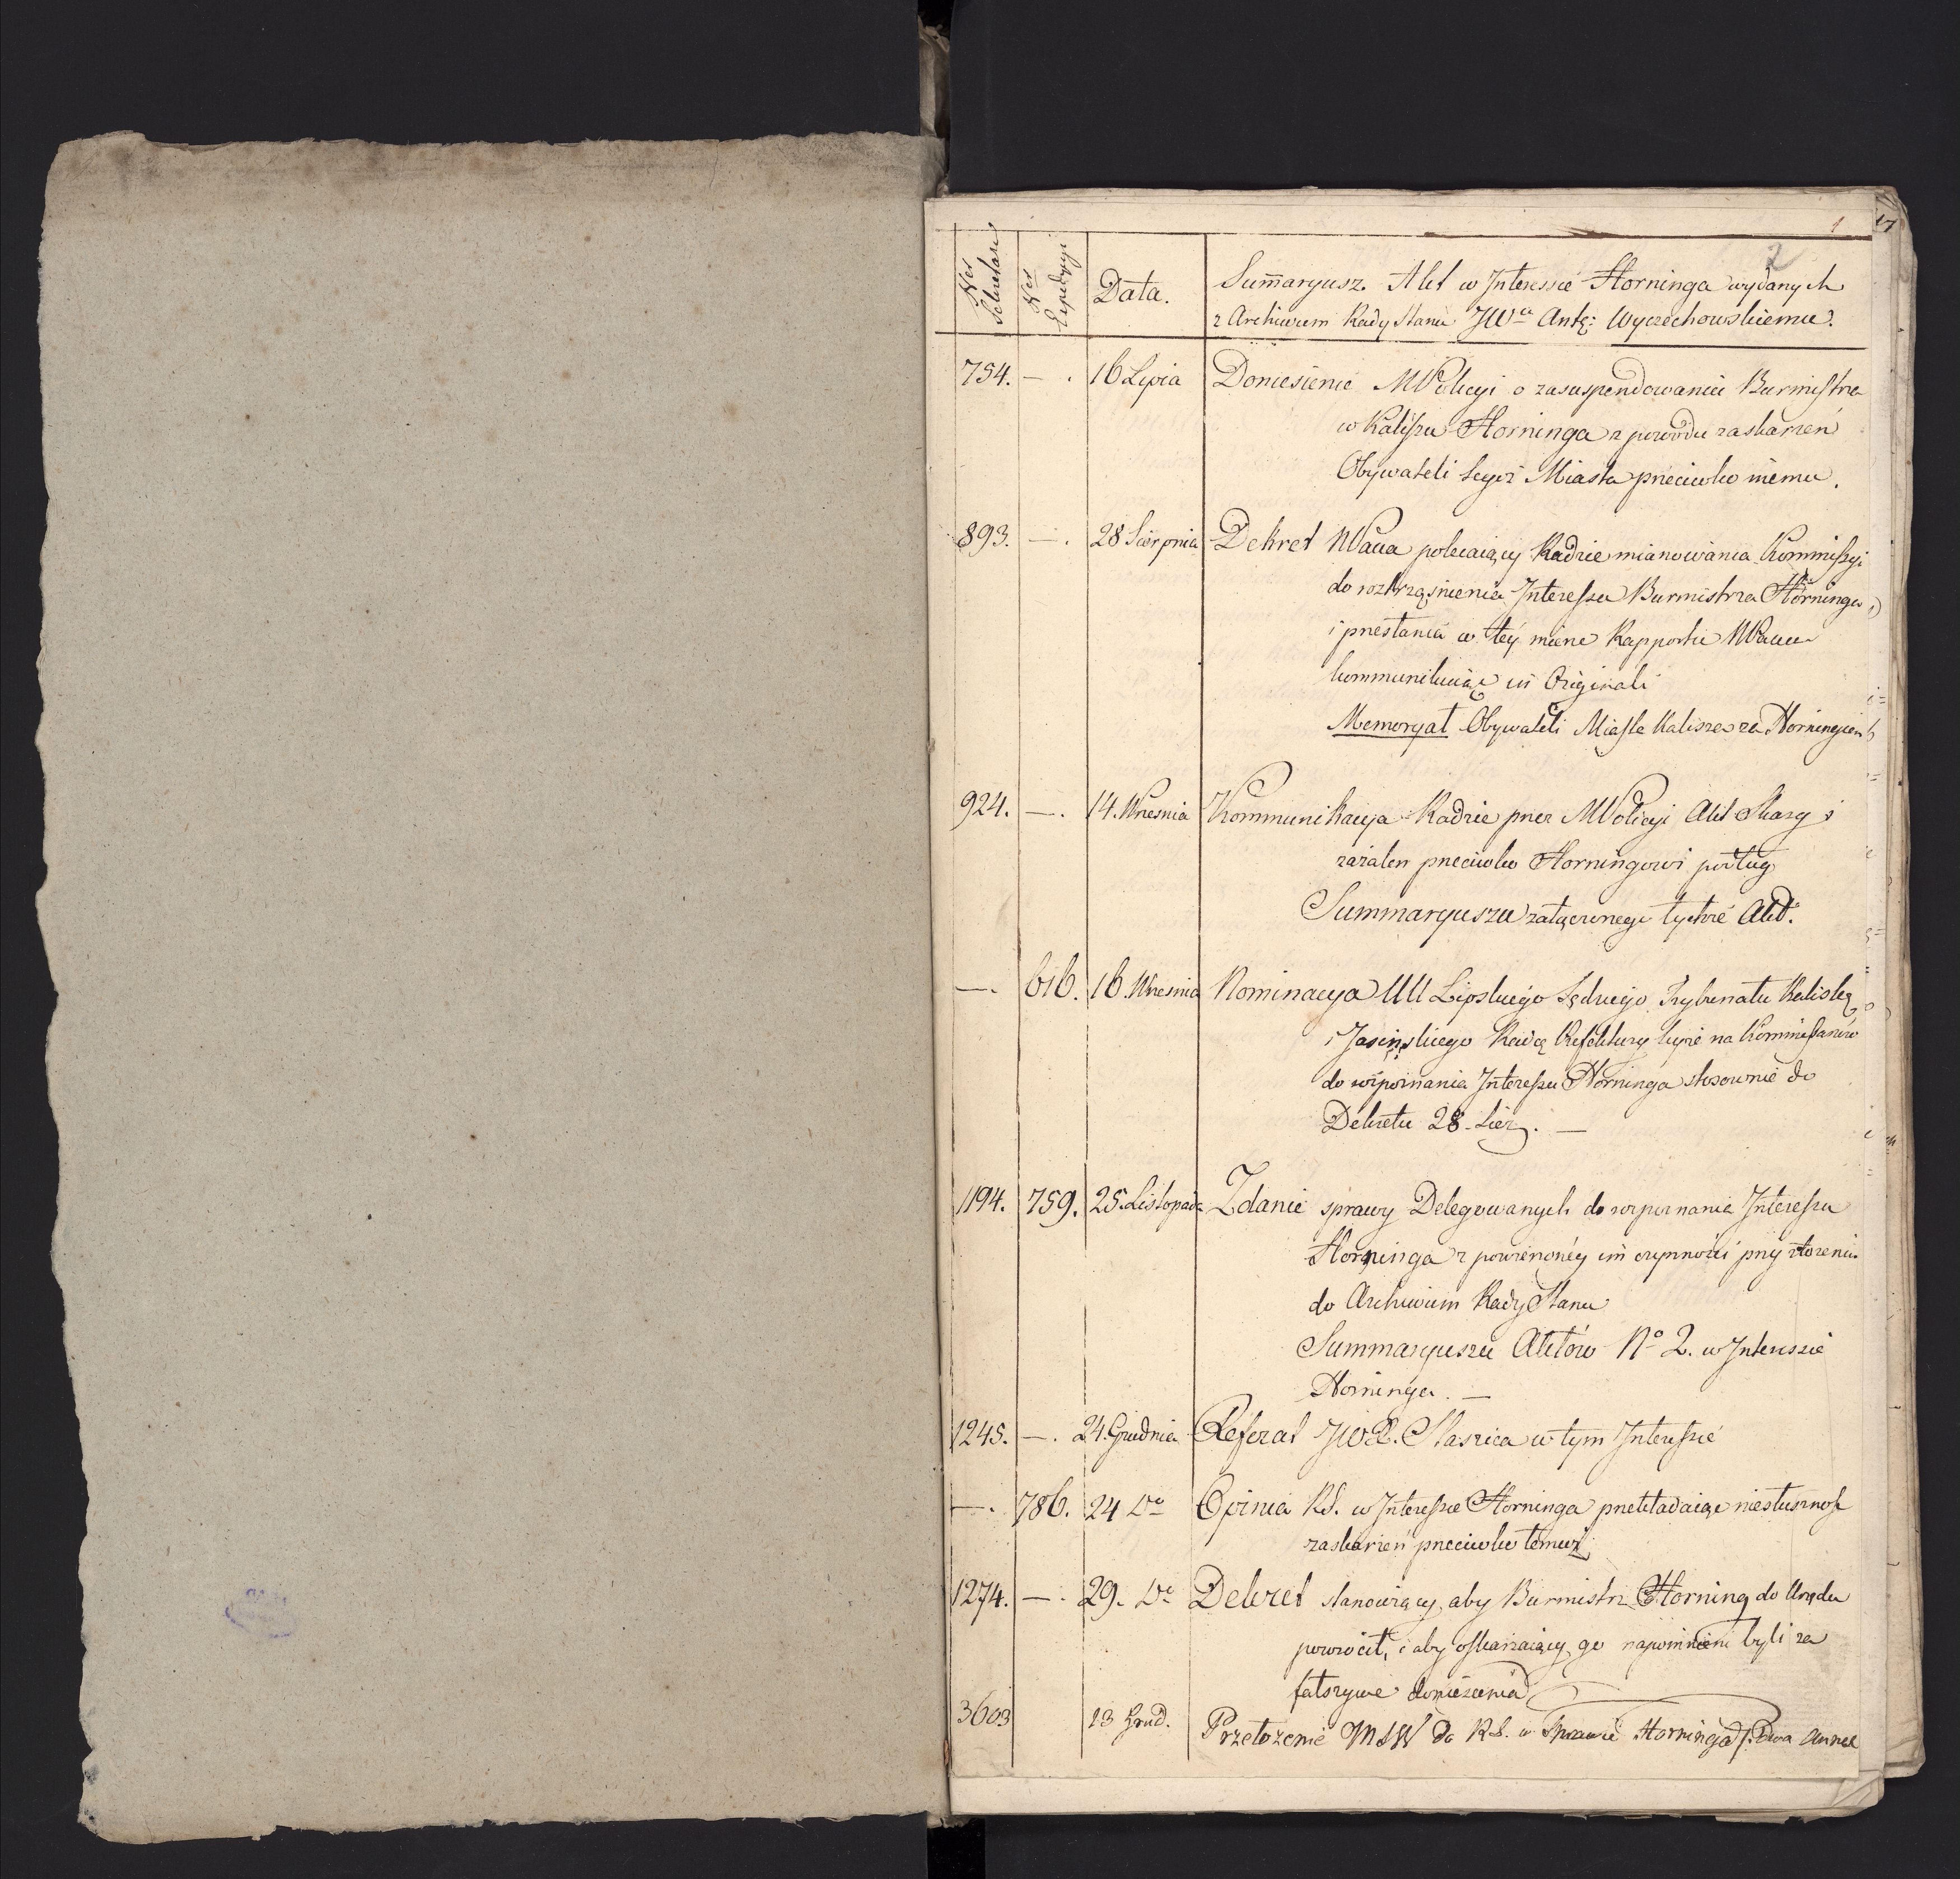 1 17
2
Nro Sekretaru
Nro Expedycyi
Data.
Summaryusz. Akt w Interessie Horninga wydanych
z Archiwum Rady Stanu JW Antę: Wyczechowskiemu.
754. — . 16 Lipca Doniesienie MPolicyi o zasuspendowaniu Burmistrza
w Kaliszu Horninga z powodu zaskarżeń
Obywateli tegoż Miasta przeciwko niemu.
893. — . 28 Sierpnia Dekret polecaiący Radzie mianowania Kommissyi
do roztrząsnienia Interessu Burmistrza Horninga
i przesłania w téy mierze Rapportu
kommunikuiąc in Originali
Memoryał Obywateli Miasta Kalisza za Horningiem
924. — . 14. Wrzesnia Kommunikacya Radzie przez MPolicyi Akt Skarg i
zażaleń przeciwko Horningowi podług
Summaryuszu załączonego tychże Akt.
— . 616. 16. Wrzesnia Nominacya Lipskiego Sędziego Trybunału Kalisk
i Jasinskiego Radcę Prefektury tegoż na Kommissarzów
do rozpoznania Interessu Horninga stosownie do
Dekretu 28. Sier. —
1194. 759. 25. Listopada Zdanie sprawy Delegowanych do rozpoznania Interessu
Horninga z powierzonéy im czynności przy złożeniu
do Archiwum Rady Stanu
Summaryuszu Aktów No 2. w Interessie
Horninga. —
1245. — . 24. Grudnia Referat JWR. Staszica w tym Interessie
— . 786. 24 Do Opinia RS. w Interessie Horninga przekładaiąc niesłusznosć
zaskarżeń przeciwko temuż
1274. — . 29. Do Dekret stanowiący, aby Burmistrz Horning do Urzędu
powrócił, i aby oskarżaiący go napomnieni byli za
fałszywe doniesienia
3603 13 Grud. Przełożenie MSW do RS. w Sprawie Horninga